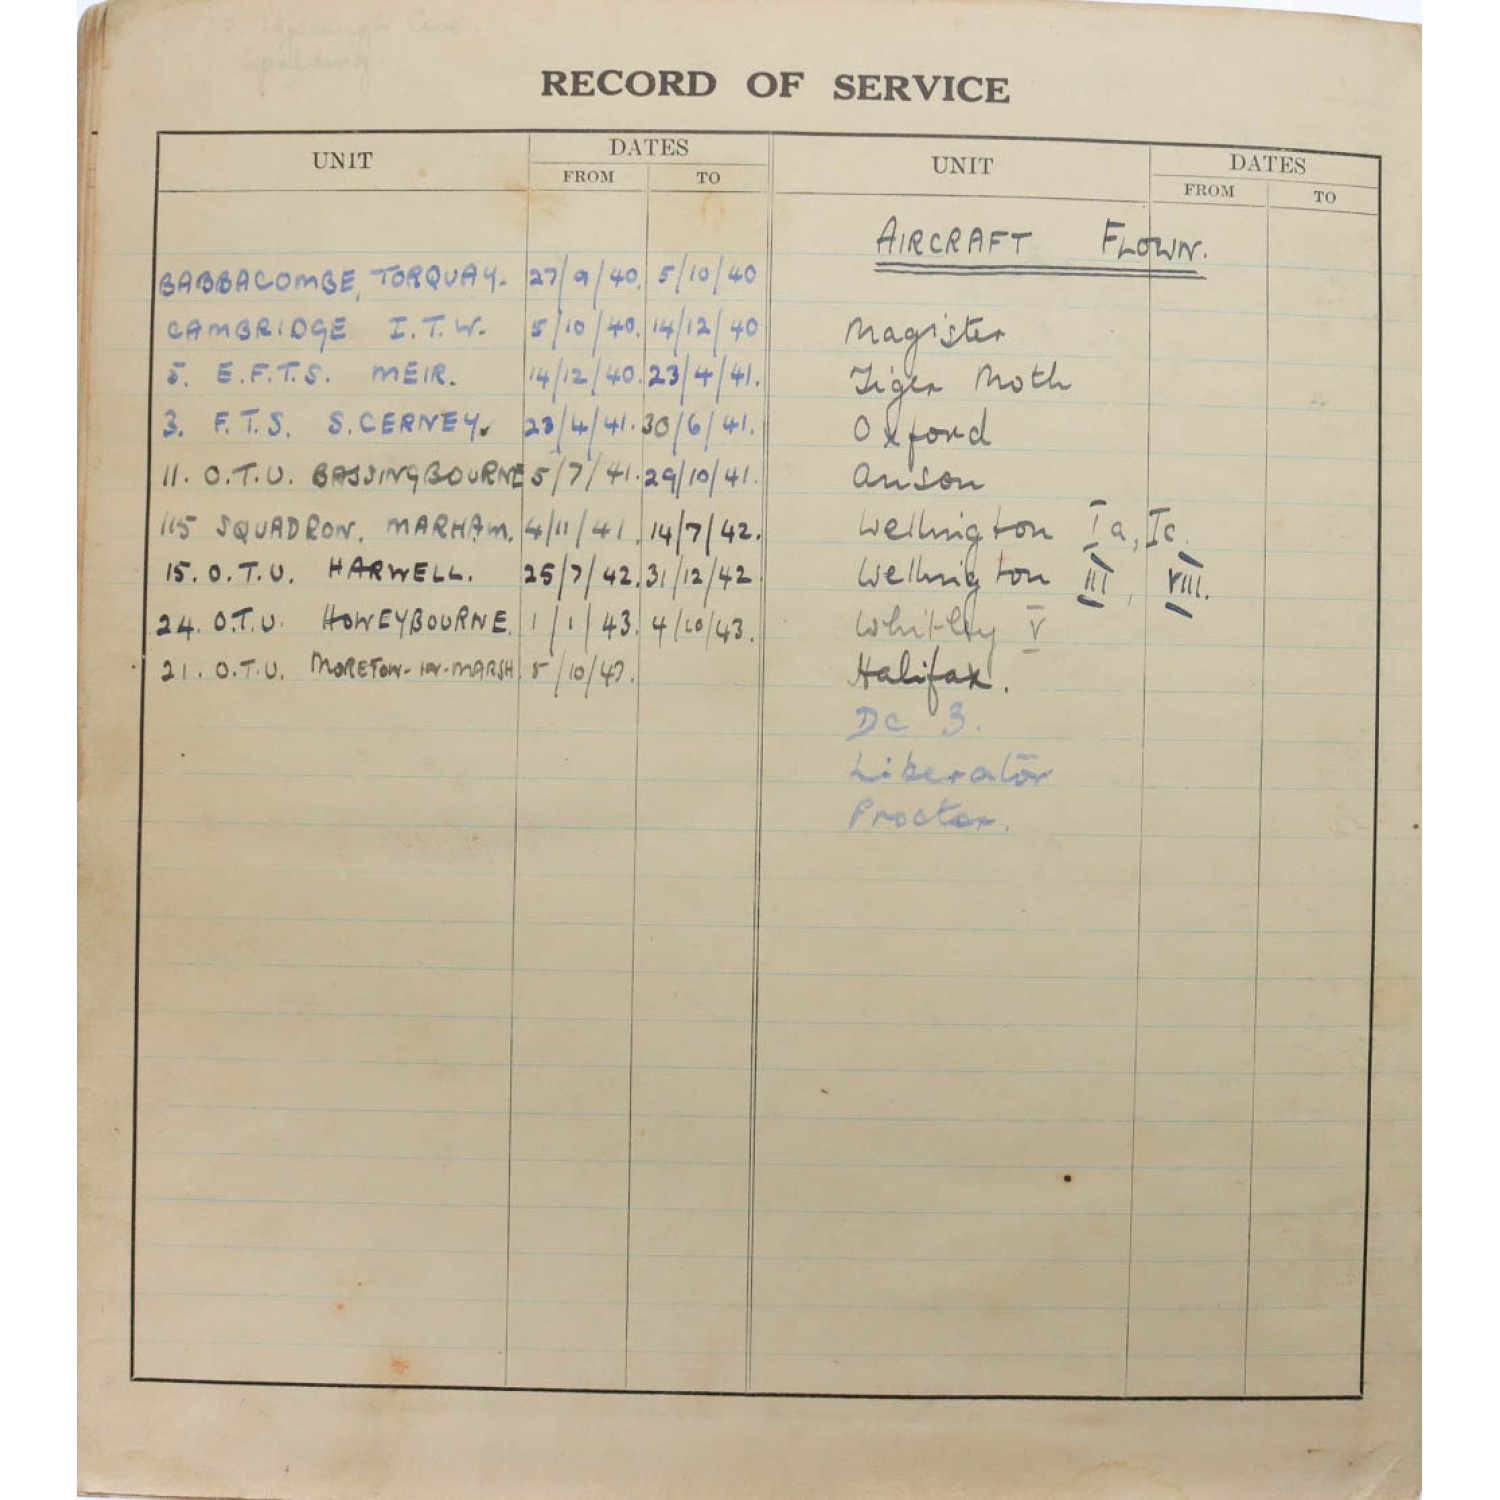 Spalding.
RECORD OF SERVICE
UNIT DATES FROM TO UNIT DATES FROM TO
BABBACOMBE, TORQUAY. 27/9/40. 5/10/40
CAMBRIDGE I.T.W. 5/10/40. 14/12/40
5. E.F.T.S. MEIR. 14/12/40. 23/4/41.
3. F.T.S. S. CERNEY. 23/4/41. 30/6/41.
11. O.T.U. BASSINGBOURNE 5/7/41. 29/10/41.
115 SQUADRON, MARHAM. 4/11/41. 14/7/42.
15. O.T.U. HARWELL. 25/7/42. 31/12/42
24. O.T.U. HONEYBOURNE. 1/1/43. 4/10/43.
21. O.T.U. MORETON-IN-MARSH 5/10/43.
AIRCRAFT FLOWN.
Magister
Tiger Moth
Oxford
Anson
Wellington Ia, Ic.
Wellington III, VIII.
Whitley V
Halifax.
DC 3.
Liberator
Proctor.